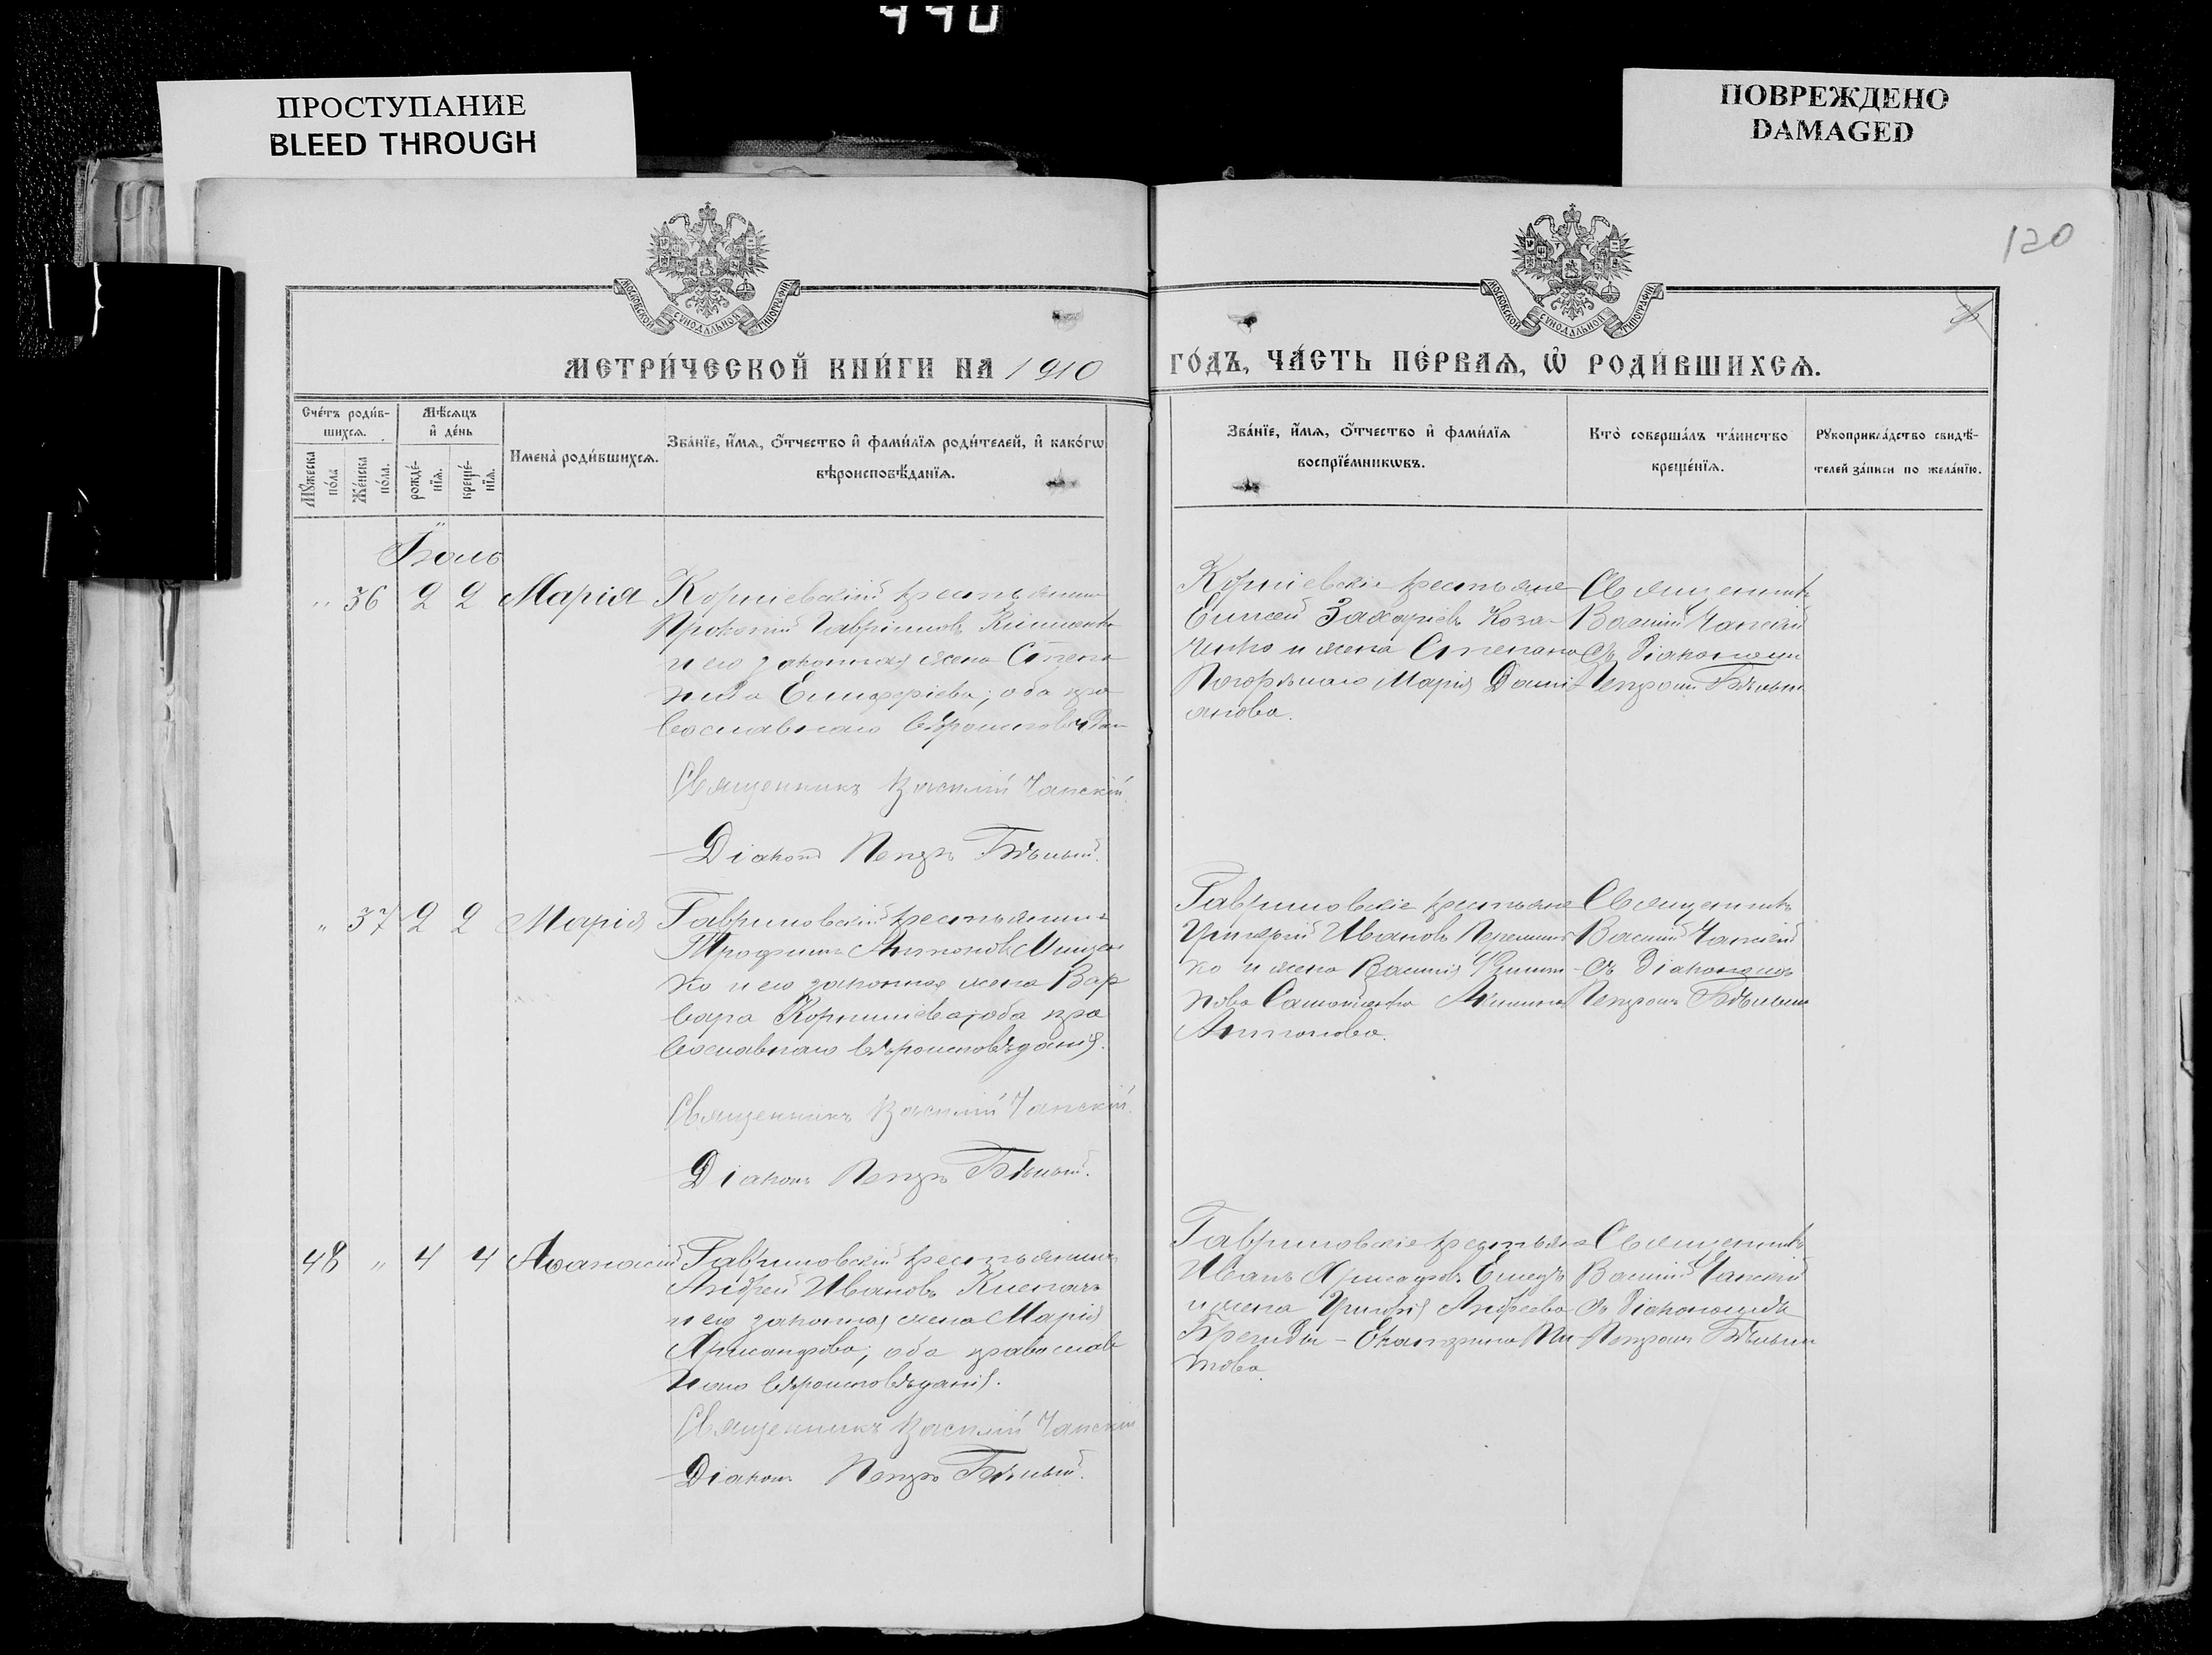 440
ПРОСТУПАНИЕ
BLEED THROUGH
ПОВРЕЖДЕНО
DAMAGED
120
МОСКОВСКОЙ СУНОДАЛЬНОЙ ТИПОГРАФІИ
МОСКОВСКОЙ СУНОДАЛЬНОЙ ТИПОГРАФІИ
МЕТРИ́ЧЕСКОЙ КНИ́ГИ НА 1910
ГО́ДЪ, ЧА́СТЬ ПЕ́РВАѦ, Ѽ РОДИ́ВШИХСѦ.
Сче́тъ роди́в-
шихсѧ.
Мꙋ́жеска
по́ла
Же́нска
по́ла.
Мѣ́сѧцъ
и҆ де́нь
рожде́-
нїѧ.
креще́-
нїѧ.
И҆мена̀ роди́вшихсѧ.
Зва́нїе, и҆́мѧ, о҆́тчество и҆ фами́лїѧ роди́телей, и҆ како́гѡ
вѣроисповѣ́данїѧ.
Зва́нїе, и҆́мѧ, о҆́тчество и҆ фами́лїѧ
воспрїе́мникѡвъ.
Кто̀ соверша́лъ та́инство
креще́нїѧ.
Рꙋкоприкла́дство свидѣ́-
телей за́писи по жела́нїю.
Іюль
" 36 2 2 Марія
крестьянинъ
Прокопій Гавріиловъ
и его законная жена Степа
нида Елиферіева; оба пра
вославнаго вѣроисповѣдан
Священникъ Василій Чапскій
Діаконъ Петръ Бѣлый.
крестьяне
Елисей Захаріевъ Коза-
ченко и жена Степана
Погорѣлаго Марія Даміа
анова.
Священникъ
Василій Чапскій
съ діакономъ
Петромъ Бѣлымъ
" 37 2 2 Марія
Гавриловскій крестьянинъ
Трофимъ Антоновъ
ко и его законная жена Вар
вара Корниліева; оба пра
вославнаго вѣроисповѣданія.
Священникъ Василій Чапскій.
Діаконъ Петръ Бѣлый.
Гавриловскіе крестьяне
Григорій Ивановъ
ко и жена Василія
Антонова.
Священникъ
Василій Чапскій
съ діакономъ
Петромъ Бѣлымъ
48 " 4 4 Аѳанасій
Гавриловскій крестьянинъ
Андрей Ивановъ
и его законная жена Марія
Александрова; оба православ
наго вѣроисповѣданія.
Священникъ Василій Чапскій
Діаконъ Петръ Бѣлый.
Гавриловскіе крестьяне
Иванъ
и жена Григорія Андреева
Екатерина Ти
това.
Священникъ
Василій Чапскій
съ діакономъ
Петромъ Бѣлымъ